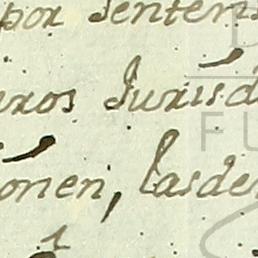 por Senten
uros Jurisd
onen, lasde